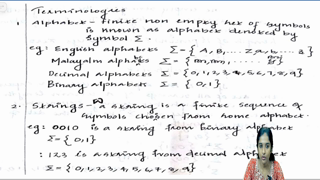 Terminologies
1. Alphabet - Finite non empty set of symbols
is known as alphabet denoted by
symbol Σ.
eg: English alphabets Σ = {A, B, ... Z, a, b ... z}
Malayalm alphabets Σ =
Decimal alphabets Σ = {0,1,2,3,4,5,6,7,8,9}
Binary alphabets Σ = {0,1}
2. Strings - a string is a finite sequence of
symbols chosen from some alphabet.
eg: 0010 is a string from binary alphabet
Σ = {0,1}
: 123 is a string from decimal alphabet
Σ = {0,1,2,3,4,5,6,7,8,9}